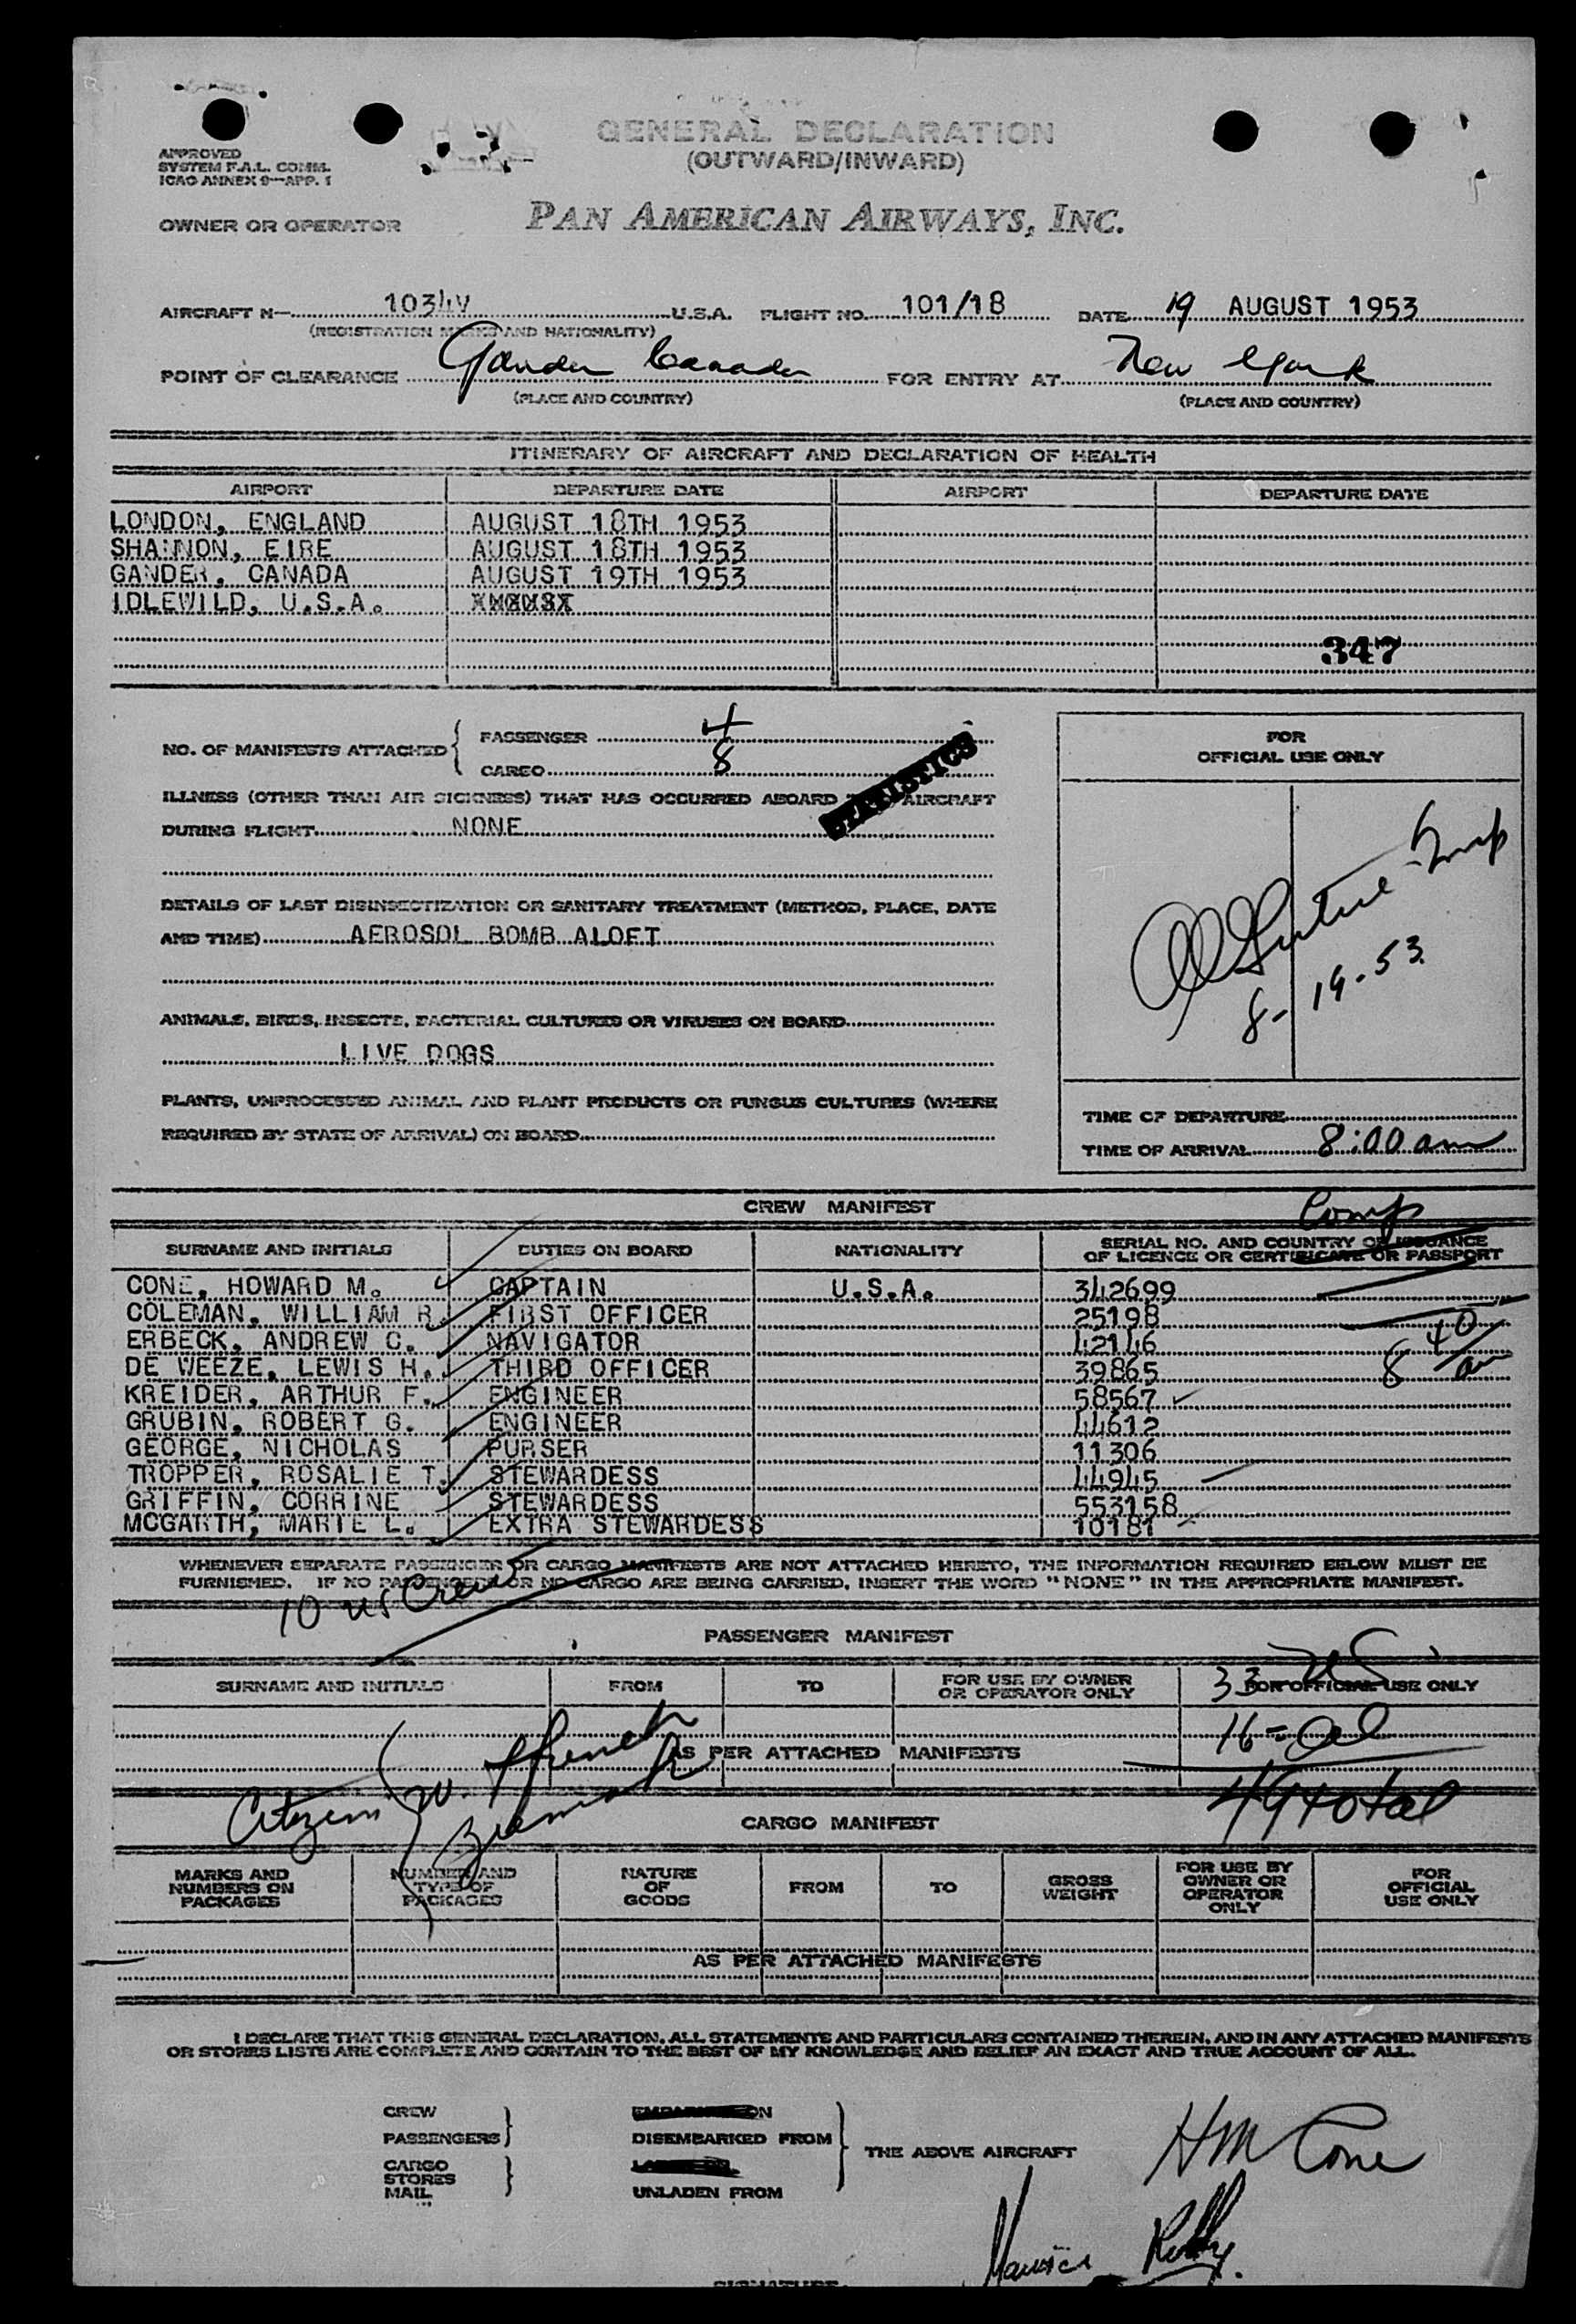 GENERAL DECLARATION
(OUTWARD/INWARD)
APPROVED
SYSTEM F.A.L. COMM.
ICAO ANNEX 9—APP. 1
OWNER OR OPERATOR PAN AMERICAN AIRWAYS, INC.
AIRCRAFT N— 1034V U.S.A. FLIGHT NO. 101/18 DATE 19 AUGUST 1953
(REGISTRATION MARKS AND NATIONALITY)
POINT OF CLEARANCE Gander Canada FOR ENTRY AT New York
(PLACE AND COUNTRY) (PLACE AND COUNTRY)
ITINERARY OF AIRCRAFT AND DECLARATION OF HEALTH
AIRPORT DEPARTURE DATE AIRPORT DEPARTURE DATE
LONDON, ENGLAND AUGUST 18TH 1953
SHANNON, EIRE AUGUST 18TH 1953
GANDER, CANADA AUGUST 19TH 1953
IDLEWILD, U.S.A.
347
NO. OF MANIFESTS ATTACHED { PASSENGER 4
CARGO 8
STATISTICS
ILLNESS (OTHER THAN AIR SICKNESS) THAT HAS OCCURRED ABOARD AIRCRAFT
DURING FLIGHT NONE
DETAILS OF LAST DISINSECTIZATION OR SANITARY TREATMENT (METHOD, PLACE, DATE
AND TIME) AEROSOL BOMB ALOFT
ANIMALS, BIRDS, INSECTS, BACTERIAL CULTURES OR VIRUSES ON BOARD
LIVE DOGS
PLANTS, UNPROCESSED ANIMAL AND PLANT PRODUCTS OR FUNGUS CULTURES (WHERE
REQUIRED BY STATE OF ARRIVAL) ON BOARD
FOR
OFFICIAL USE ONLY
8-19-53
TIME OF DEPARTURE
TIME OF ARRIVAL 8:00 am
CREW MANIFEST
Comp
SURNAME AND INITIALS DUTIES ON BOARD NATIONALITY SERIAL NO. AND COUNTRY OF ISSUANCE
OF LICENCE OR CERTIFICATE OR PASSPORT
CONE, HOWARD M. CAPTAIN U.S.A. 342699
COLEMAN, WILLIAM R. FIRST OFFICER 25198
ERBECK, ANDREW C. NAVIGATOR 42146
DE WEEZE, LEWIS H. THIRD OFFICER 39865 8 40 am
KREIDER, ARTHUR F. ENGINEER 58567
GRUBIN, ROBERT G. ENGINEER 44612
GEORGE, NICHOLAS PURSER 11306
TROPPER, ROSALIE T. STEWARDESS 44945
GRIFFIN, CORRINE STEWARDESS 553158
MCGARTH, MARIE L. EXTRA STEWARDESS 10181
WHENEVER SEPARATE PASSENGER OR CARGO MANIFESTS ARE NOT ATTACHED HERETO, THE INFORMATION REQUIRED BELOW MUST BE
FURNISHED. IF NO PASSENGERS OR NO CARGO ARE BEING CARRIED, INSERT THE WORD "NONE" IN THE APPROPRIATE MANIFEST.
10 us Crew
PASSENGER MANIFEST
SURNAME AND INITIALS FROM TO FOR USE BY OWNER
OR OPERATOR ONLY FOR OFFICIAL USE ONLY
33 US
16 = al
AS PER ATTACHED MANIFESTS
49 total
Citizens W.
CARGO MANIFEST
MARKS AND
NUMBERS ON
PACKAGES NUMBER AND
TYPE OF
PACKAGES NATURE
OF
GOODS FROM TO GROSS
WEIGHT FOR USE BY
OWNER OR
OPERATOR
ONLY FOR
OFFICIAL
USE ONLY
AS PER ATTACHED MANIFESTS
I DECLARE THAT THIS GENERAL DECLARATION, ALL STATEMENTS AND PARTICULARS CONTAINED THEREIN, AND IN ANY ATTACHED MANIFESTS
OR STORES LISTS ARE COMPLETE AND CONTAIN TO THE BEST OF MY KNOWLEDGE AND BELIEF AN EXACT AND TRUE ACCOUNT OF ALL.
CREW
PASSENGERS } DISEMBARKED FROM
CARGO
STORES
MAIL } UNLADEN FROM
THE ABOVE AIRCRAFT
HM Cone
SIGNATURE